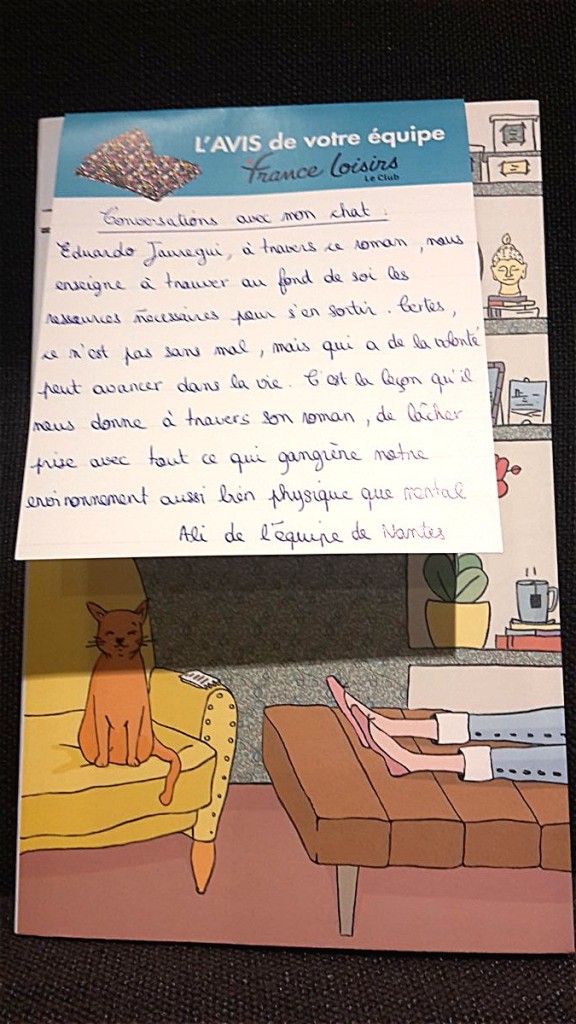 L'AVIS de votre équipe
france loisirs
Le Club
Conversations avec mon chat :
Eduardo Jauregui, à travers ce roman, nous
enseigne à trouver au fond de soi les
ressources nécessaires pour s'en sortir. Certes,
ce n'est pas sans mal, mais qui a de la volonté
peut avancer dans la vie. C'est la leçon qu'il
nous donne à travers son roman, de lâcher
prise avec tout ce qui gangrène notre
environnement aussi bien physique que mental
Ali de l'équipe de Nantes